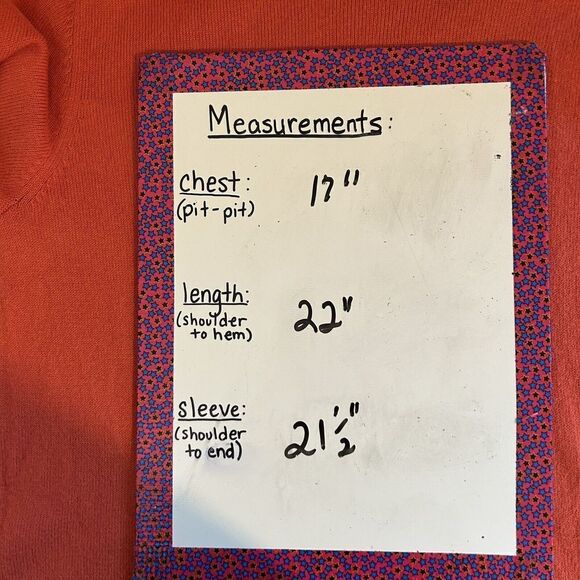 Measurements:
chest: 17"
(pit-pit)
length:
(shoulder 22"
to hem)
sleeve:
(shoulder 21 1/2"
to end)